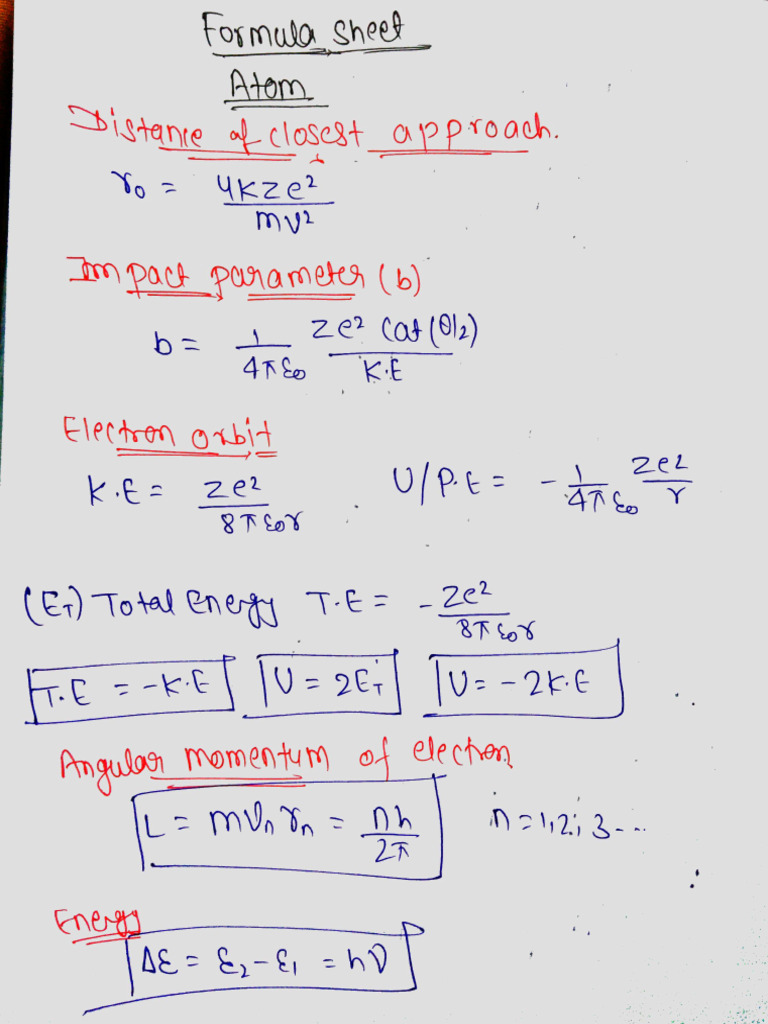 Formula sheet
Atom
Distance of closest approach.
r₀ = 4KZe²/mv²
Impact parameter (b)
b = 1/4πε₀ Ze² Cat(θ/2)/K.E
Electron orbit
K.E = Ze²/8πε₀r . U/P.E = -1/4πε₀ Ze²/r
(E_T) Total Energy T.E = -Ze²/8πε₀r
T.E = -K.E U = 2E_T U = -2K.E
Angular momentum of electron
L = mvₙrₙ = nh/2π n = 1, 2, 3 - --
Energy
ΔE = E₂-E₁ = hν